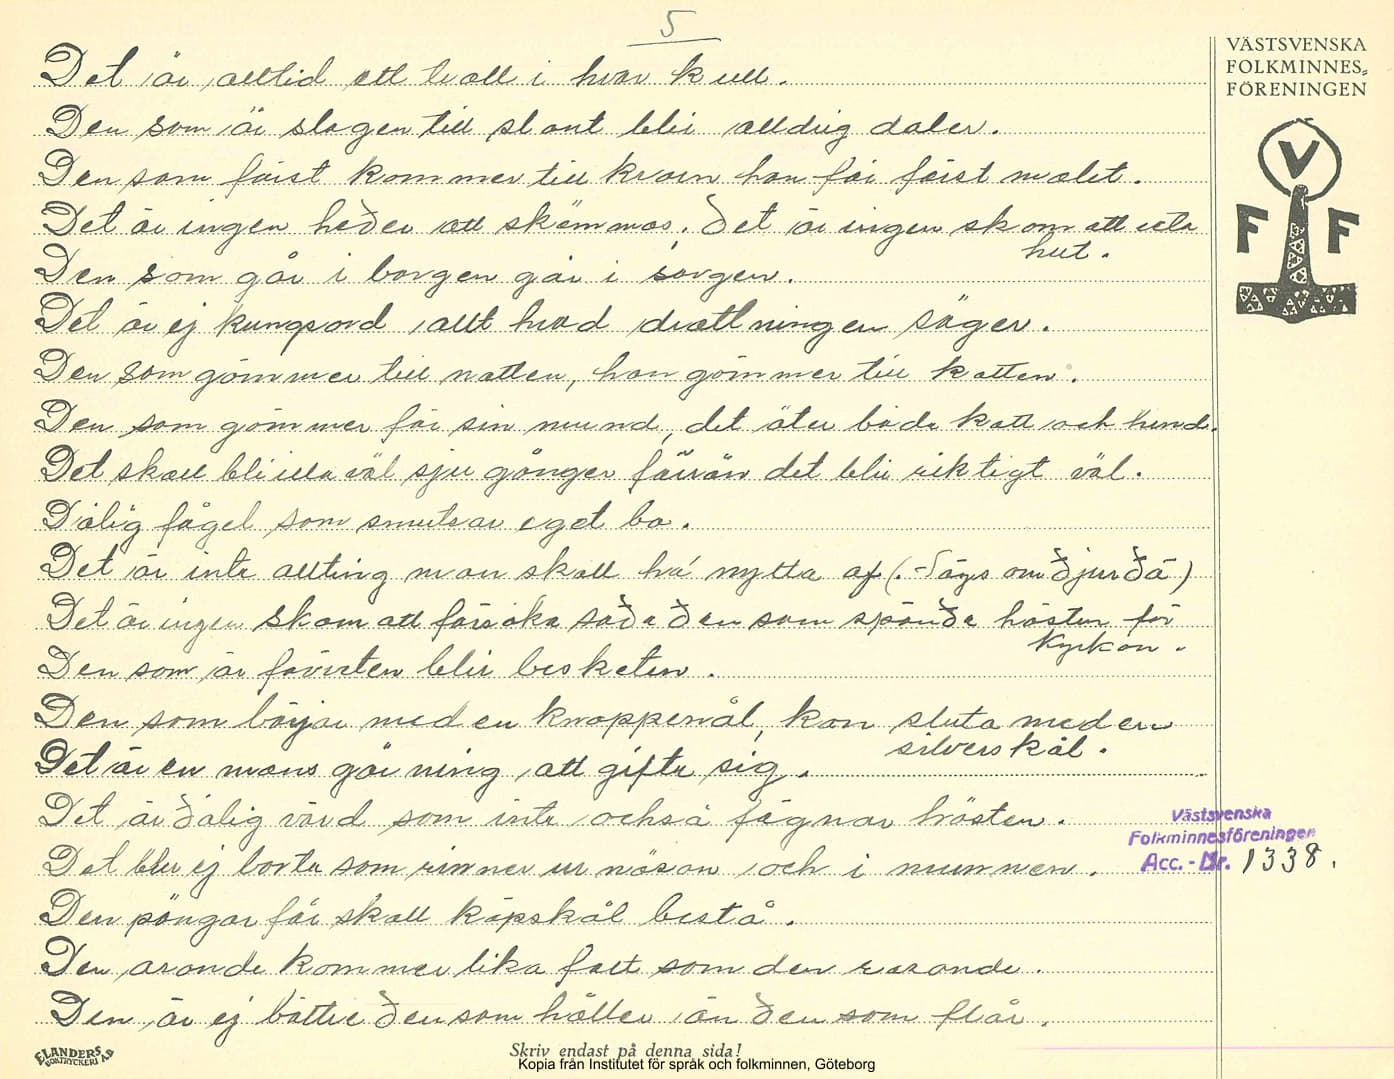 5
VÄSTSVENSKA
FOLKMINNES=
FÖRENINGEN
V
F F
Det är alltid ett troll i hvar kull.
Den som är slagen till slant blir alldrig daler.
Den som först kommer till kvarn han får först malet.
Det är ingen heder att skämmas, det är ingen skam att veta
hut.
Den som går i borgen går i sorgen.
Det är ej kungsord allt hvad drottningen säger.
Den som gömmer till natten, han gömmer till katten.
Den som gömmer för sin mund, det äter både katt och hund.
Det skall bli illa väl sju gånger förrän det blir riktigt väl.
Dålig fågel som smutsar eget bo.
Det är inte allting man skall ha nytta af (.-Sägs om djur då)
Det är ingen skam att försöka sa den som spände hästen för
kyrkan.
Den som är företen blir besketen.
Den som börjar med en knappenål, kan sluta med en
silverskål.
Det är en mans görning att gifta sig.
Det är dålig värd som inte också fägnar hästen.
Det blir ej borta som rinner ur näsan och i munnen.
Den pängar får skall köpskål bestå.
Den arande kommer lika fort som den rasande.
Den är ej bättre den som håller än den som flår.
Västsvenska
Folkminnesföreningen
Acc. - Nr. 1338.
ELANDERS
BOKTRYCKERI A.B
Skriv endast på denna sida!
Kopia från Institutet för språk och folkminnen, Göteborg